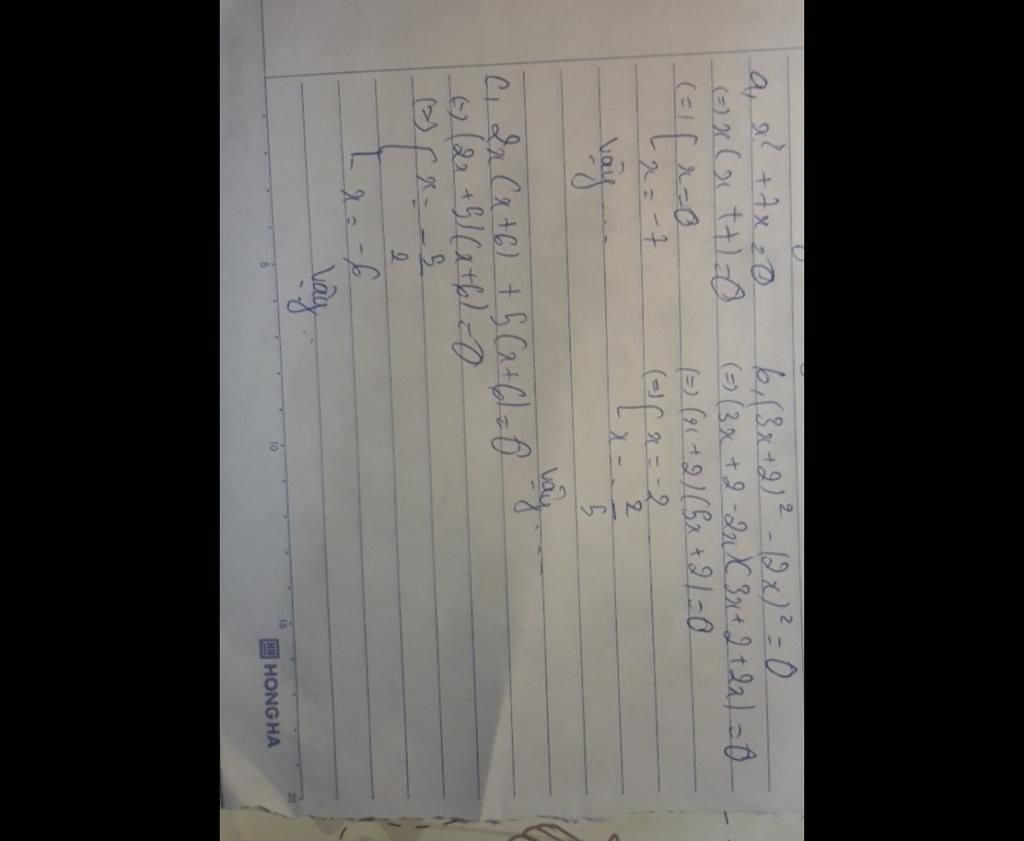 a, x² + 7x = 0
(=) x(x + 7) = 0
(=) [ x = 0
[ x = -7
Vậy ...
b, (3x+2)² - (2x)² = 0
(=) (3x + 2 - 2x)(3x + 2 + 2x) = 0
(=) (x + 2)(5x + 2) = 0
(=) [ x = -2
[ x = -2/5
Vậy ...
c, 2x(x+6) + 5(x+6) = 0
(=) (2x + 5)(x+6) = 0
(=) [ x = -5/2
[ x = -6
Vậy ...
5 10 15 20
HONG HA